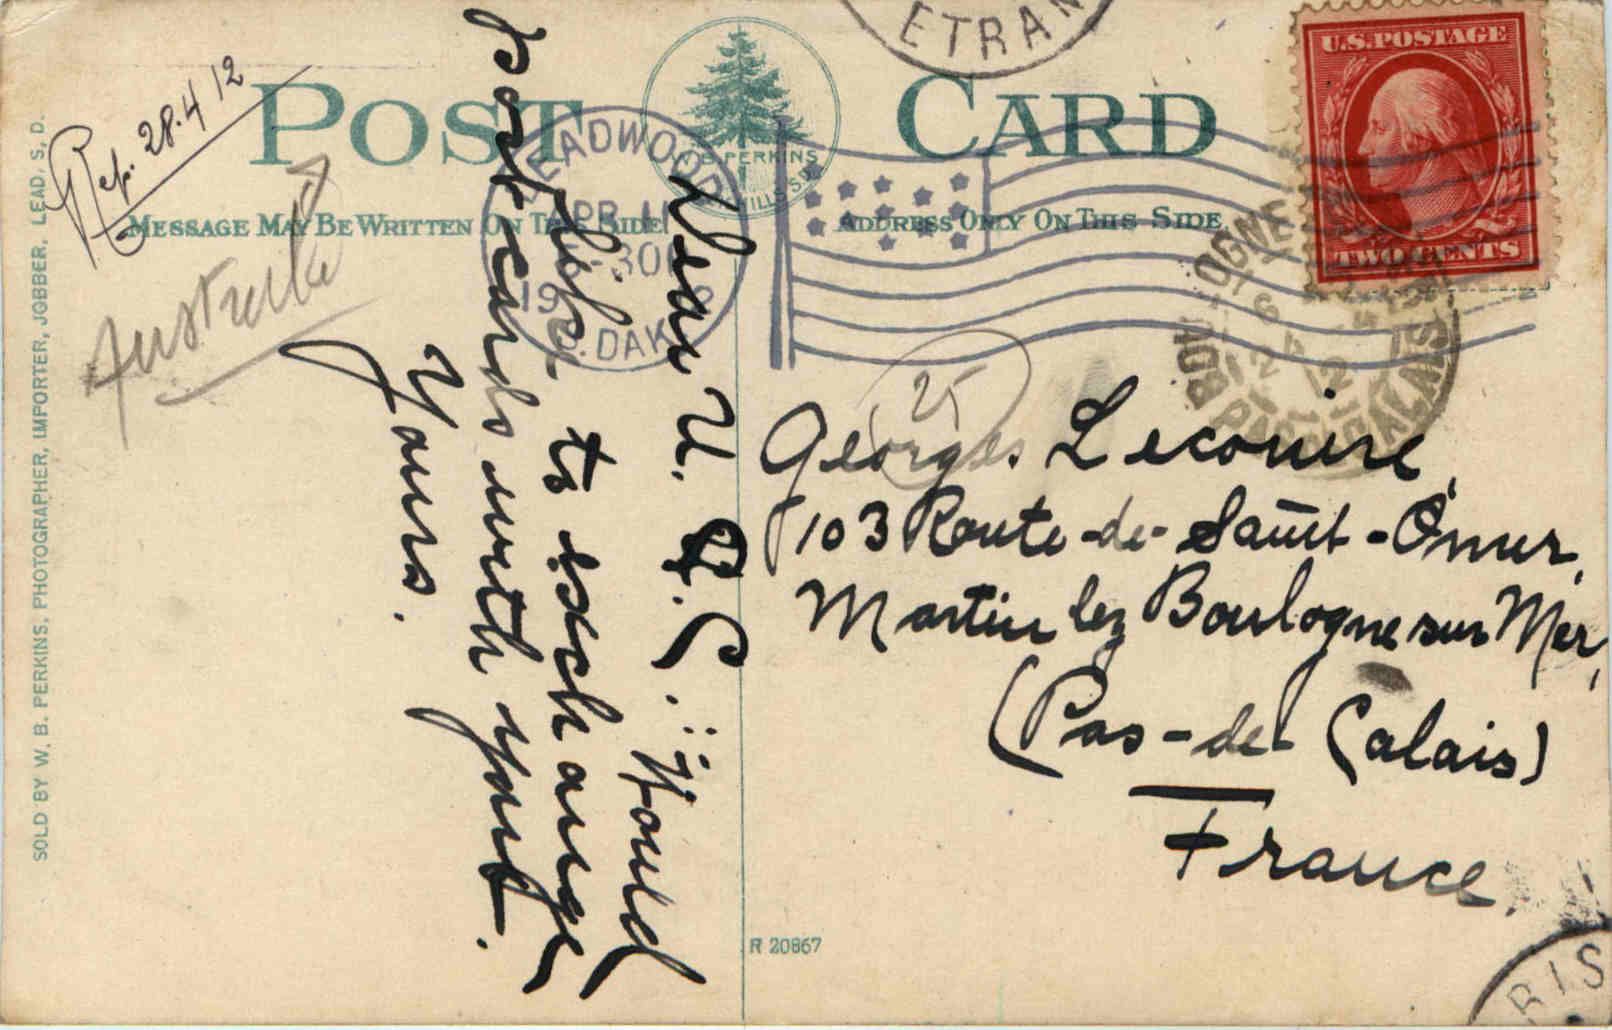 POST CARD
W. B. PERKINS
HILLS S.D.
MESSAGE MAY BE WRITTEN ON THIS SIDE
ADDRESS ONLY ON THIS SIDE
SOLD BY W. B. PERKINS, PHOTOGRAPHER, IMPORTER, JOBBER, LEAD, S. D.
Rep. 28.4 12
DEADWOOD
APR 11
30
S. DAK.
ETRAN
U.S. POSTAGE
TWO CENTS
BOULOGNE
PAS DE CALAIS
25
Dear U. S. S. Would
like to esch ange
post cards with yout.
Yours.
Georges. Lecouire,
103 Route-de-Saint-Omer,
Martin lez Boulogne sur Mer,
(Pas-de-Calais)
France.
R 20867
RIS